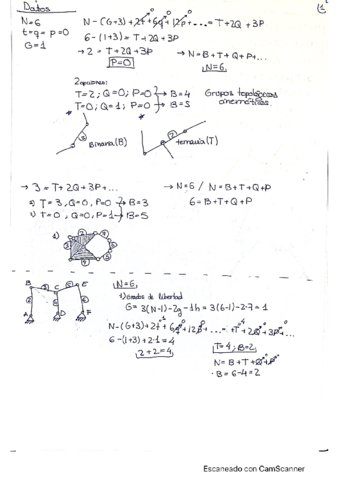 Datos
N=6
t=q=p=0
G=1
N-(G+3)+2t+6q+12p+...=T+2Q+3P
6-(1+3)=T+2Q+3P
→2=T+2Q+3P →N=B+T+Q+P+...
P=0 N=6
2 opciones:
T=2; Q=0; P=0 → B=4
T=0; Q=1; P=0 → B=5
Grupos topológicos
Binaria(B)
ternaria(T)
→3=T+2Q+3P+... →N=6 / N=B+T+Q+P
T=3, Q=0, P=0 → B=3 6=B+T+Q+P
T=0, Q=0, P=1 → B=5
N=6
Grados de libertad
G=3(N-1)-2g-1h=3(6-1)-2·7=1
N-(G+3)+2t+6q+12p+...=T+2Q+3P...
6-(1+3)+2·1=4 T=4; B=2
2+2=4 N=B+T+Q+P
B=6-4=2
Escaneado con CamScanner